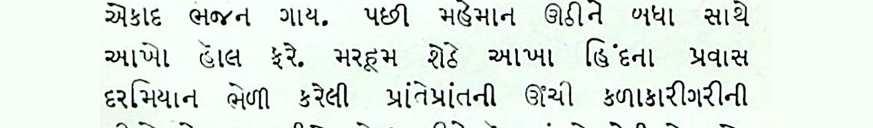 એકાદ ભજન ગાય. પછી મહેમાન ઊઠીને બધા સાથે
આખો હૉલ ફરે. મરહૂમ શેઠે આખા હિંદના પ્રવાસ
દરમિયાન ભેળી કરેલી પ્રાંતેપ્રાંતની ઊંચી કળાકારીગરીની